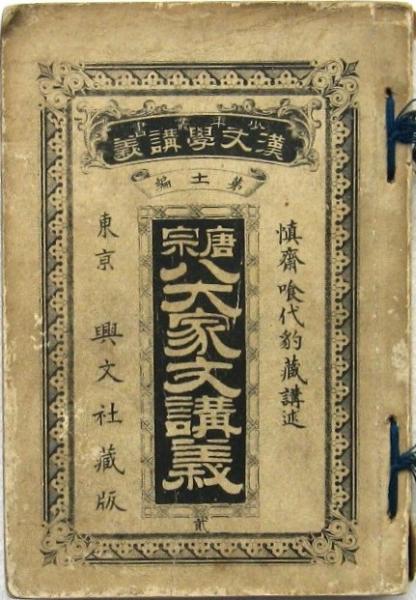 少年叢書
漢文學講義
第十一編
慎齋喰代豹藏講述
唐宋八大家文講義
貳
東京 興文社藏版